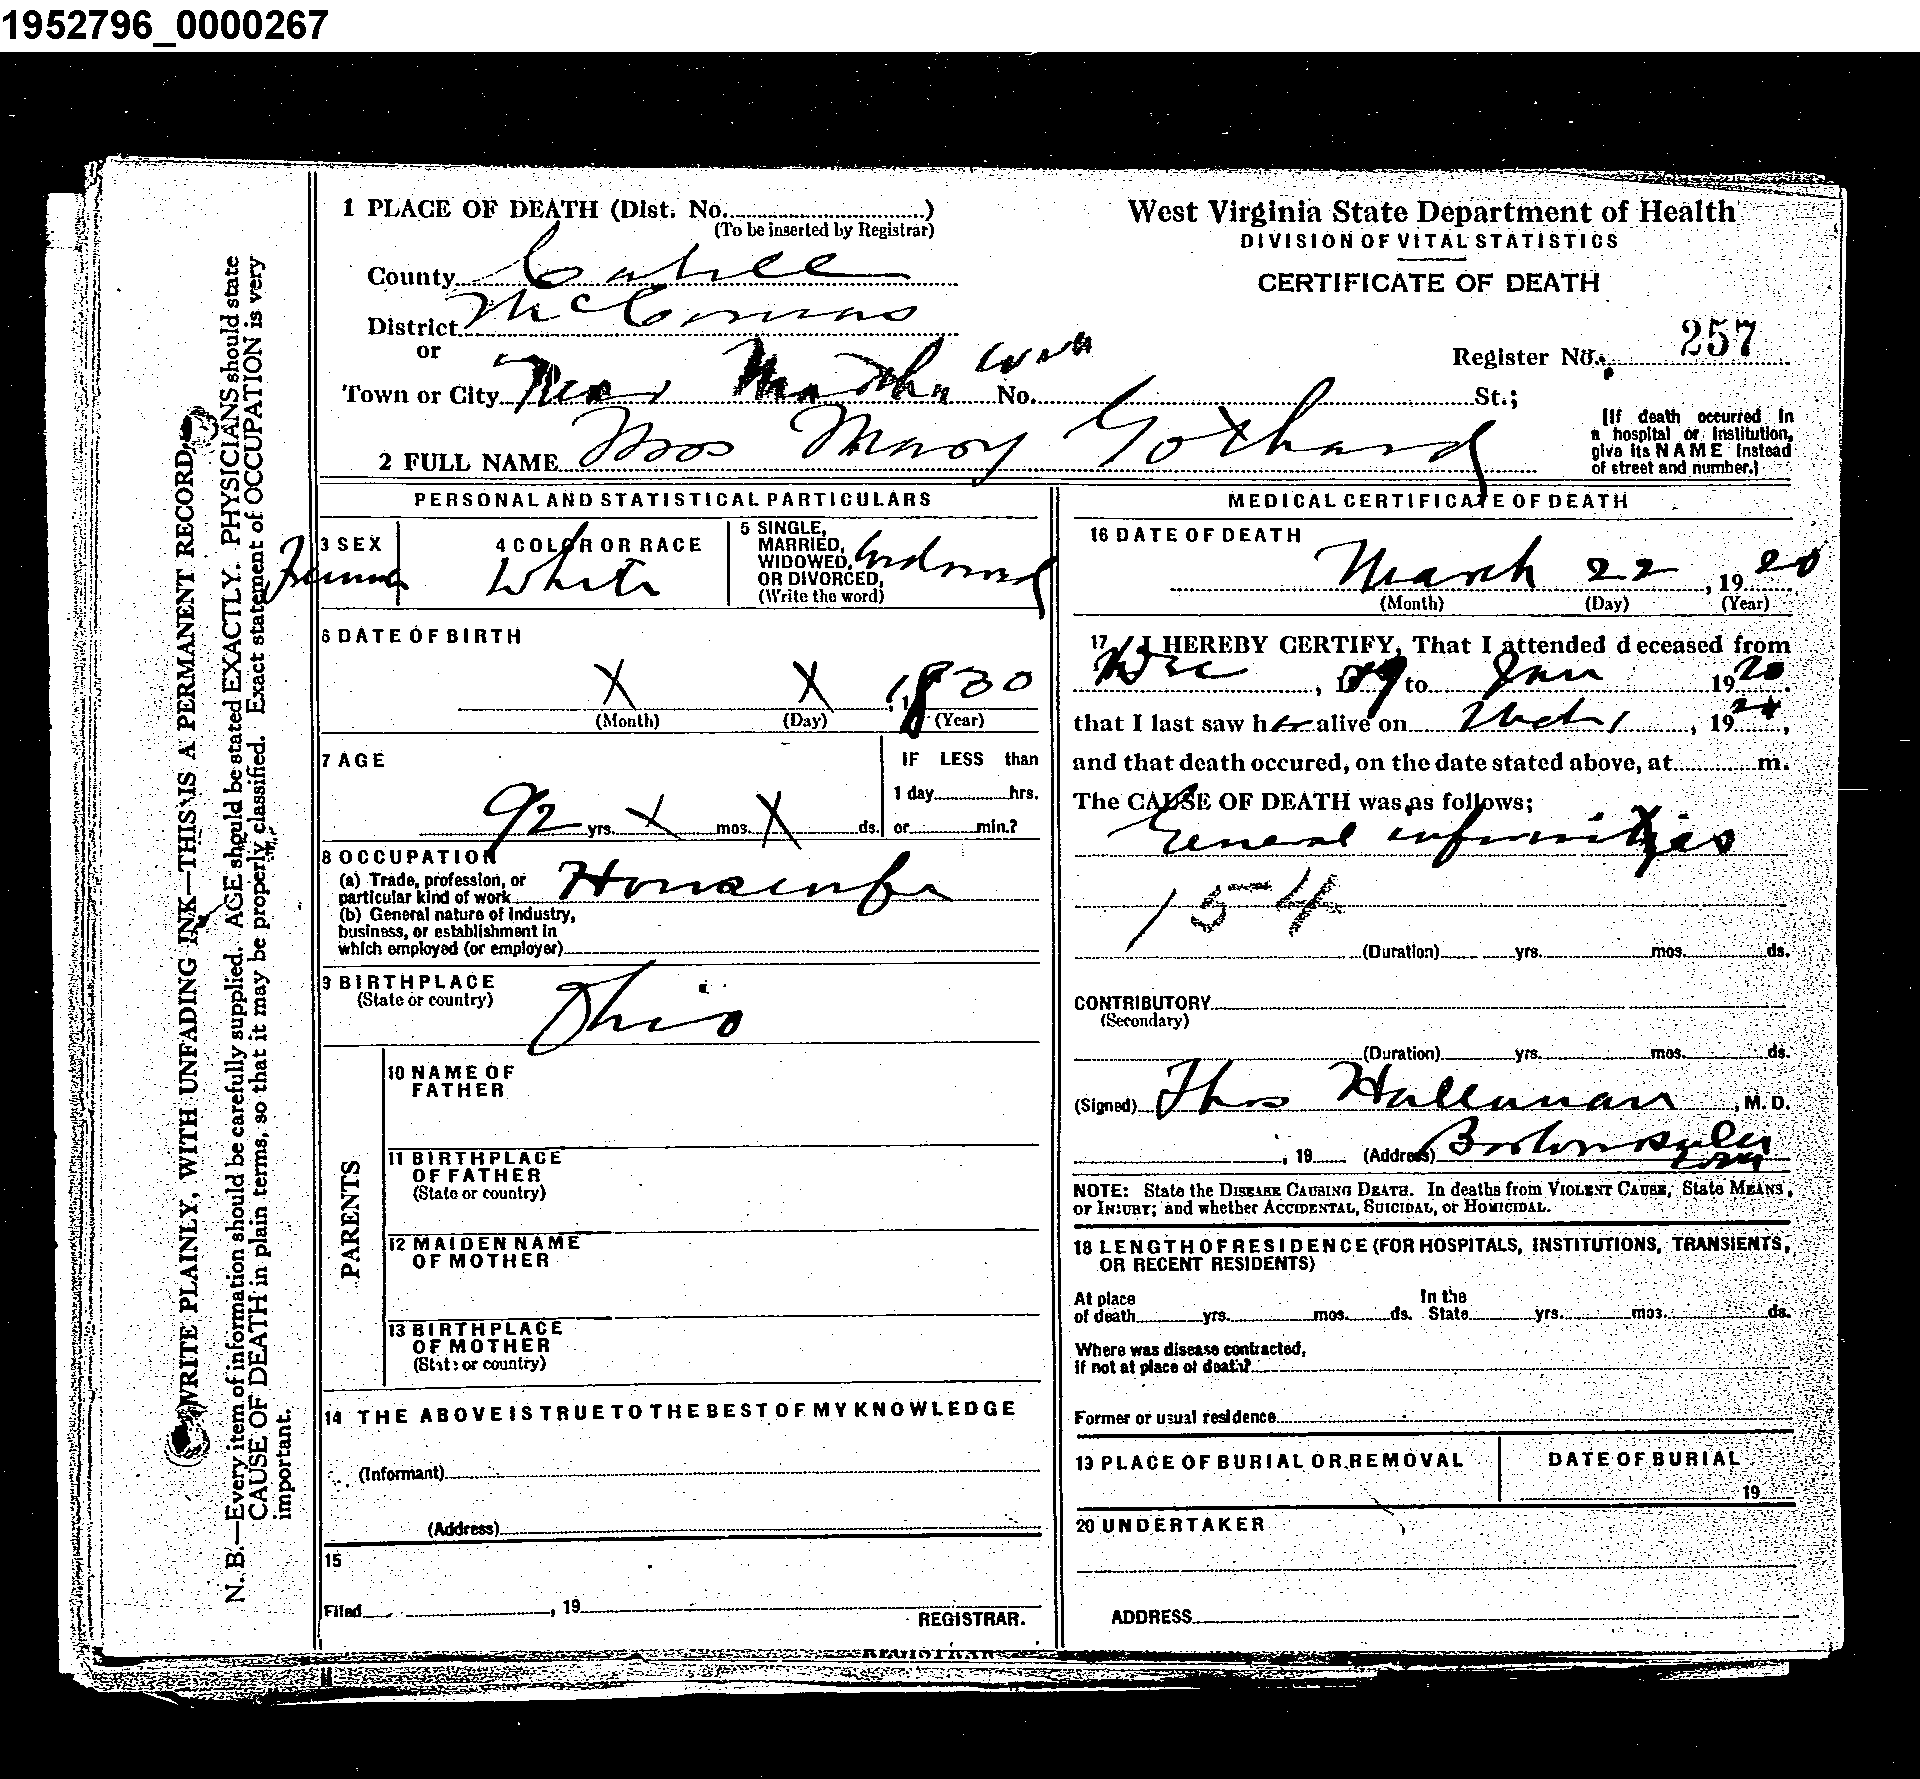 1952796_0000267
1 PLACE OF DEATH (Dist. No.)
(To be inserted by Registrar)
County Cabell
District McComas
or
Town or City Near Martha W Va No. St.;
2 FULL NAME Mrs Mary Gothard
West Virginia State Department of Health
DIVISION OF VITAL STATISTICS
CERTIFICATE OF DEATH
Register No. 257
[If death occurred in
a hospital or institution,
give its NAME instead
of street and number.]
PERSONAL AND STATISTICAL PARTICULARS
3 SEX
4 COLOR OR RACE
White
5 SINGLE,
MARRIED,
WIDOWED,
OR DIVORCED,
(Write the word)
Widowed
6 DATE OF BIRTH
X X 1830
(Month) (Day) (Year)
7 AGE
92 yrs. X mos. X ds.
IF LESS than
1 day hrs.
or min.?
8 OCCUPATION
(a) Trade, profession, or
particular kind of work Housewife
(b) General nature of industry,
business, or establishment in
which employed (or employer)
9 BIRTHPLACE
(State or country)
Ohio
PARENTS
10 NAME OF
FATHER
11 BIRTHPLACE
OF FATHER
(State or country)
12 MAIDEN NAME
OF MOTHER
13 BIRTHPLACE
OF MOTHER
(State or country)
14 THE ABOVE IS TRUE TO THE BEST OF MY KNOWLEDGE
(Informant)
(Address)
15
Filed , 19
REGISTRAR.
MEDICAL CERTIFICATE OF DEATH
16 DATE OF DEATH
March 22, 1920
(Month) (Day) (Year)
17 I HEREBY CERTIFY, That I attended deceased from
Dec , 19 to Jan 1920
that I last saw her alive on , 19
and that death occured, on the date stated above, at m.
The CAUSE OF DEATH was as follows;
General infirmities
154
(Duration) yrs. mos. ds.
CONTRIBUTORY
(Secondary)
(Duration) yrs. mos. ds.
(Signed) Thos Hallanan, M. D.
, 19 (Address)
NOTE: State the DISEASE CAUSING DEATH. In deaths from VIOLENT CAUSE, State MEANS,
or INJURY; and whether ACCIDENTAL, SUICIDAL, or HOMICIDAL.
18 LENGTH OF RESIDENCE (FOR HOSPITALS, INSTITUTIONS, TRANSIENTS,
OR RECENT RESIDENTS)
At place
of death yrs. mos. ds.
In the
State yrs. mos. ds.
Where was disease contracted,
if not at place of death?
Former or usual residence
19 PLACE OF BURIAL OR REMOVAL
DATE OF BURIAL
19
20 UNDERTAKER
ADDRESS
WRITE PLAINLY, WITH UNFADING INK—THIS IS A PERMANENT RECORD
N. B.—Every item of information should be carefully supplied. AGE should be stated EXACTLY. PHYSICIANS should state
CAUSE OF DEATH in plain terms, so that it may be properly classified. Exact statement of OCCUPATION is very
important.
REGISTRAR